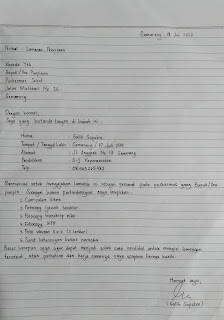 Semarang, 18 Juli 2020
Perihal : Lamaran Pekerjaan
Kepada Yth.
Bapak/Ibu Pimpinan
Puskesmas Sehat
Jalan Melati No 26
Semarang
Dengan hormat,
Saya yang bertanda tangan di bawah ini :
Nama : Galih Saputra
Tempat / Tanggal Lahir : Semarang / 17 Juli
Alamat : Jl. Anggrek No 18 Semarang
Pendidikan : S-1 Keperawatan
Telp :
Bermaksud untuk mengajukan lamaran ini sebagai perawat pada puskesmas yang Bapak/Ibu
pimpin. Sebagai bahan pertimbangan saya lampirkan :
1. Curiculum Vitae
2. Fotocopy ijazah terakhir
3. Fotocopy transkrip nilai
4. Fotocopy KTP
5. Pass ukuran 3x4 (2 lembar)
6. Surat keterangan bebas narkoba
Besar harapan saya agar dapat menjadi salah satu kandidat untuk mengisi lowongan
tersebut, atas perhatian dan kerja samanya saya ucapkan terima kasih.
Hormat saya,
(Galih Saputra)